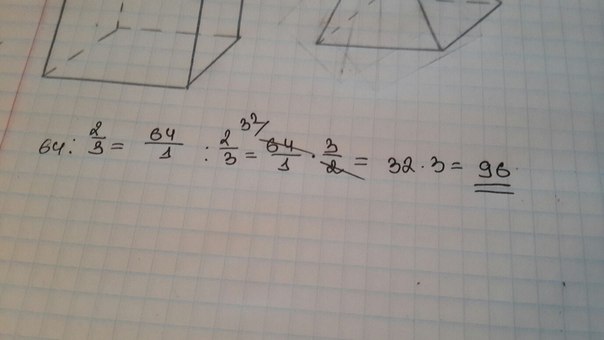 64 : 2/3 = 64/1 : 2/3 = 32/ 64/1 · 3/2 = 32 · 3 = 96